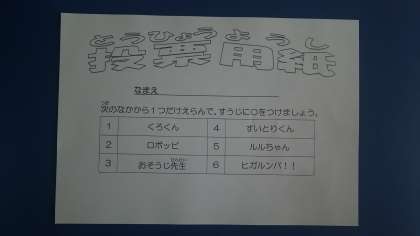 とうひょうようし
投票用紙
なまえ
つぎ
次のなかから1つだけえらんで、すうじに○をつけましょう。
1 くろくん 4 すいとりくん
2 ロボッピ 5 ルルちゃん
せんせい
3 おそうじ先生 6 ヒガルンバ!!